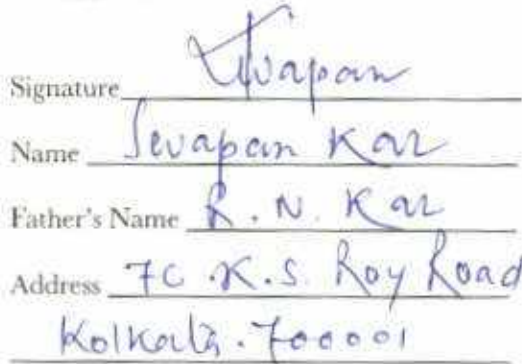 Signature Swapan
Name Swapan Kar
Father's Name R. N. Kar
Address 7C . K.S. Roy Road
Kolkata. 700001